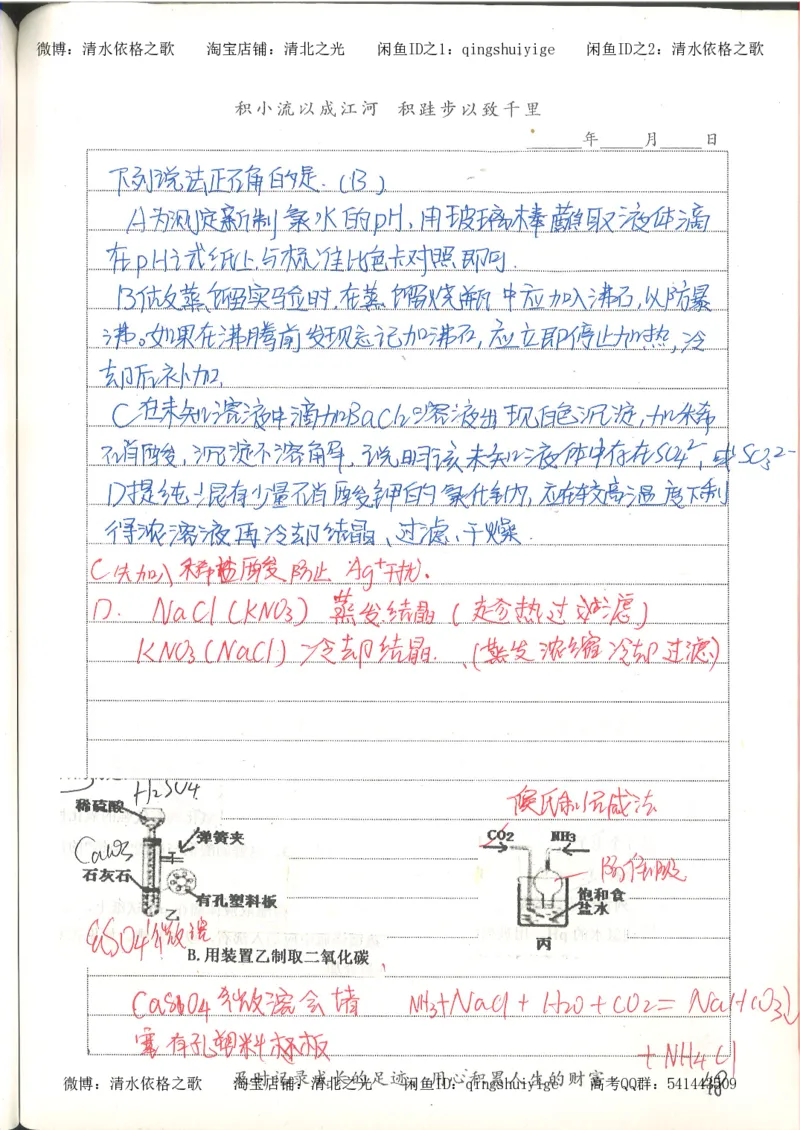 微博：清水依格之歌 淘宝店铺：清北之光 闲鱼ID之1：qingshuiyige 闲鱼ID之2：清水依格之歌
积小流以成江河 积跬步以致千里
年 月 日
下列说法正确的是.(B)
A为测定新制氯水的pH,用玻璃棒蘸取液体滴
在pH试纸上与标准比色卡对照即可.
B做蒸馏实验时,在蒸馏烧瓶中应加入沸石,以防暴
沸。如果在沸腾前发现忘记加沸石,应立即停止加热,冷
却后补加.
C在未知溶液中滴加BaCl2溶液出现白色沉淀,加稀
硝酸,沉淀不溶解,说明该未知液体中存在SO4²⁻,或SO3²⁻
D提纯混有少量硝酸钾的氯化钠,应在较高温度下制
得浓溶液再冷却结晶、过滤、干燥.
C 先加入稀盐酸防止Ag⁺干扰.
D. NaCl(KNO3) 蒸发结晶(趁热过滤)
KNO3(NaCl) 冷却结晶.(蒸发浓缩冷却过滤)
H2SO4
稀硫酸
弹簧夹
CaCO3
石灰石
有孔塑料板
乙
CaSO4微溶
B.用装置乙制取二氧化碳
侯氏制碱法
CO2 NH3
防倒吸
饱和食
盐水
丙
CaSO4微溶会堵
塞有孔塑料板
NH3+NaCl+H2O+CO2=NaHCO3↓
+NH4Cl
及时记录成长的足迹 用心积累人生的财富
微博：清水依格之歌 淘宝店铺：清北之光 闲鱼ID：qingshuiyige 高考QQ群：541443509
48